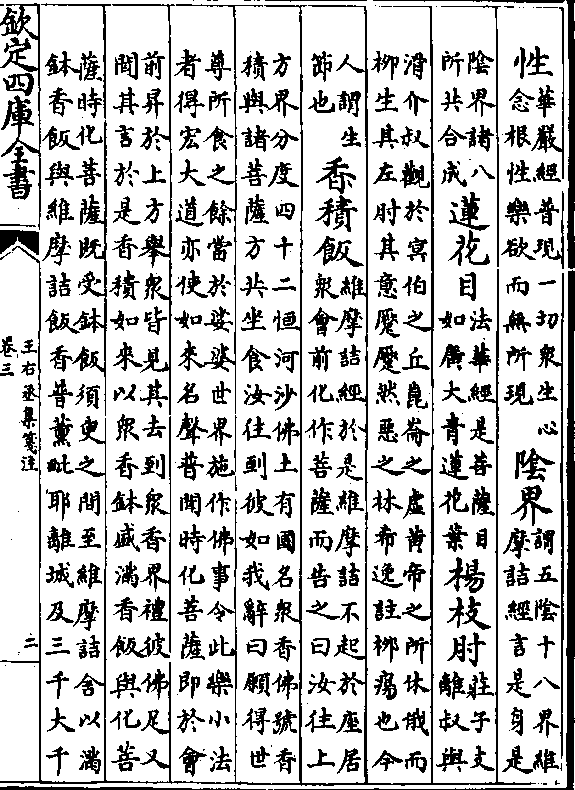 性華嚴經普現一切衆生心念根性樂欲而無所現陰界謂五陰十八界維摩詰經言是身是
陰界諸入所共合成蓮花目法華經是菩薩目如廣大青蓮花葉楊枝肘莊子支離叔與
滑介叔觀於冥伯之丘崑崙之虛黄帝之所休俄而
栁生其左肘其意蹷蹷然惡之林希逸註栁瘍也今
人謂生節也香積飯維摩詰經於是維摩詰不起於座居衆會前化作菩薩而告之曰汝往上
方界分度四十二恒河沙佛土有國名衆香佛號香
積與諸菩薩方共坐食汝往到彼如我辭曰願得世
尊所食之餘當於娑婆世界施作佛事令此樂小法
者得宏大道亦使如來名聲普聞時化菩薩即於會
前昇於上方舉衆皆見其去到衆香界禮彼佛足又
聞其言於是香積如來以衆香鉢盛滿香飯與化菩
薩時化菩薩既受鉢飯須臾之間至維摩詰舍以滿
鉢香飯與維摩詰飯香普薰毗耶離城及三千大千
欽定四庫全書
王右丞集箋注
卷三
二